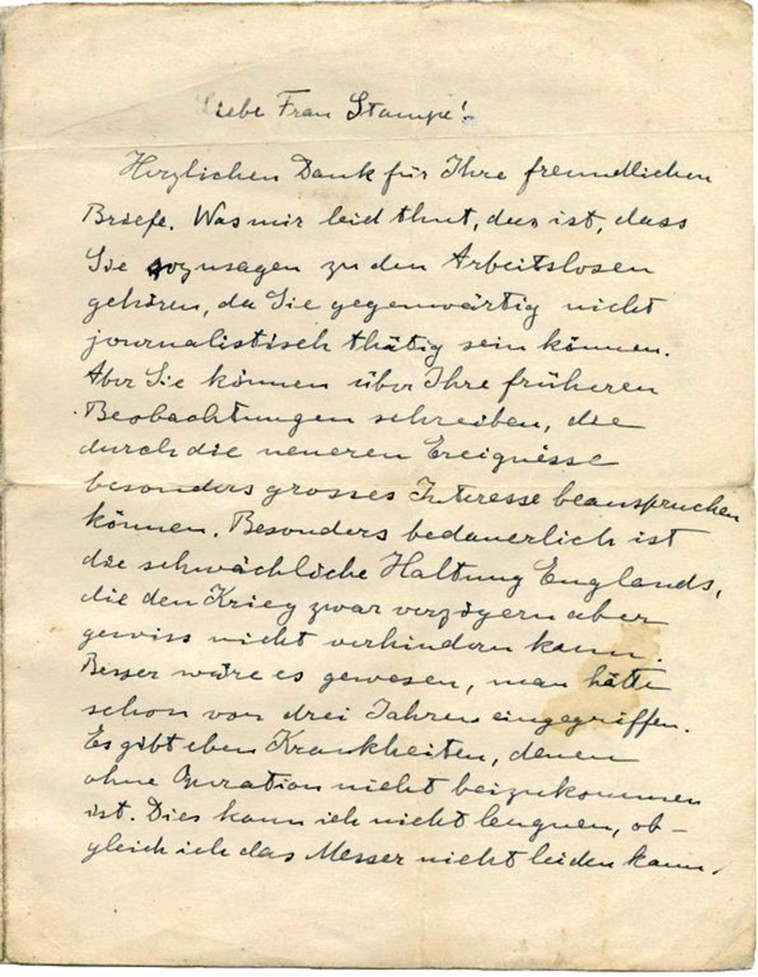 Liebe Frau Stampe!
Herzlichen Dank für Ihre freundlichen
Briefe. Was mir leid thut, das ist, dass
Sie sozusagen zu den Arbeitslosen
gehören, da Sie gegenwärtig nicht
journalistisch thätig sein können.
Aber Sie können über Ihre früheren
Beobachtungen schreiben, die
durch die neueren Ereignisse
besonders grosses Interesse beanspruchen
können. Besonders bedauerlich ist
die schwächliche Haltung Englands,
die den Krieg zwar verzögern aber
gewiss nicht verhindern kann.
Besser wäre es gewesen, man hätte
schon vor drei Jahren eingegriffen.
Es gibt eben Krankheiten, denen
ohne Operation nicht beizukommen
ist. Dies kann ich nicht leugnen, ob-
gleich ich das Messer nicht leiden kann.